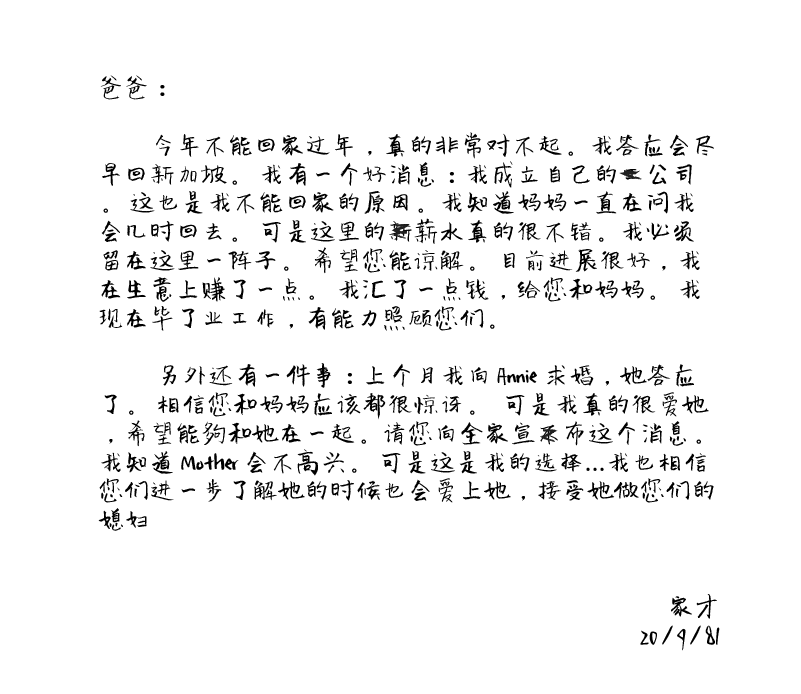 爸爸：
今年不能回家过年，真的非常对不起。我答应会尽
早回新加坡。我有一个好消息：我成立自己的公司
。这也是我不能回家的原因。我知道妈妈一直在问我
会几时回去。可是这里的薪水真的很不错。我必须
留在这里一阵子。希望您能谅解。目前进展很好，我
在生意上赚了一点。我汇了一点钱，给您和妈妈。我
现在毕了业工作，有能力照顾您们。
另外还有一件事：上个月我向Annie求婚，她答应
了。相信您和妈妈应该都很惊讶。可是我真的很爱她
，希望能够和她在一起。请您向全家宣布这个消息。
我知道Mother会不高兴。可是这是我的选择...我也相信
您们进一步了解她的时候也会爱上她，接受她做您们的
媳妇
家才
20/9/81